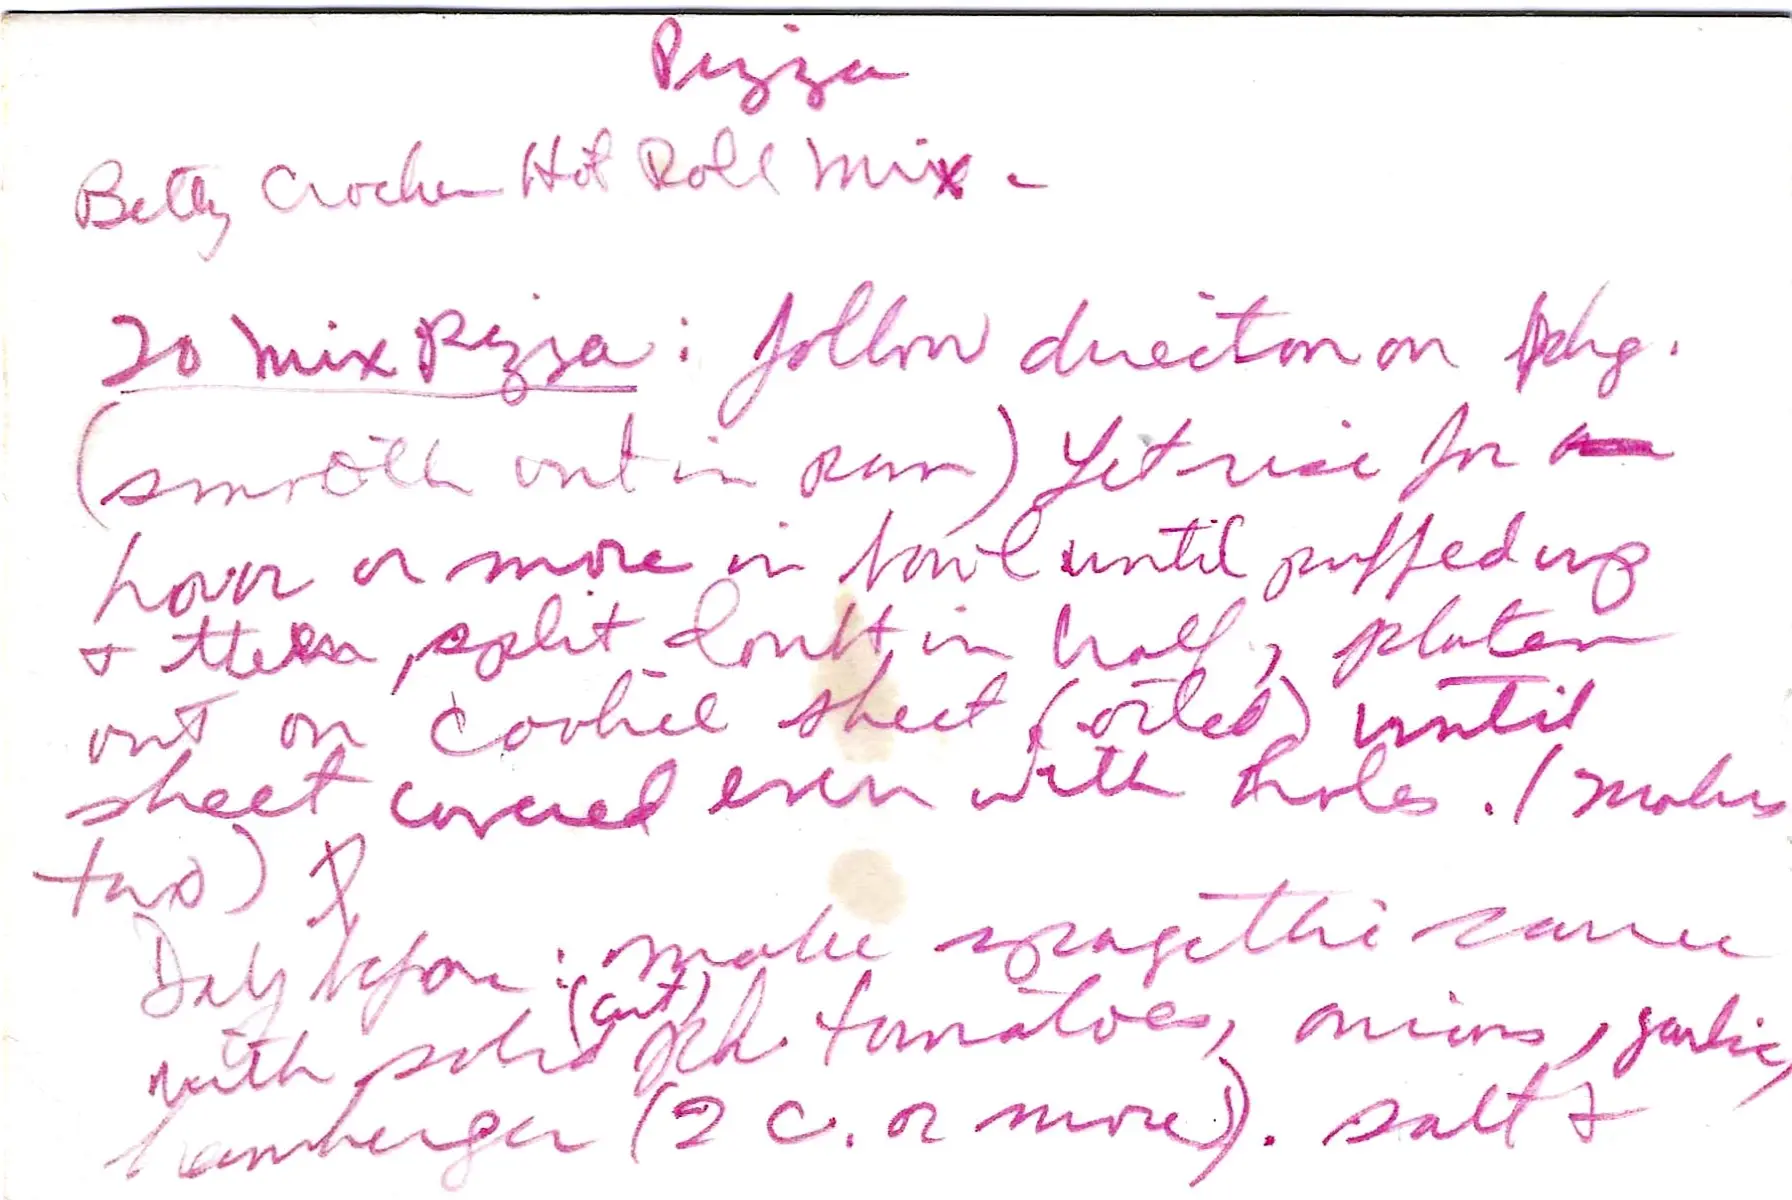 Pizza
Betty Crocker Hot Roll Mix -
To Mix Pizza: follow direction on pkg.
(smooth out in pan) Let rise for
hour or more in bowl until puffed up
+ then, split in half, flaten
out on cookie sheet (oiled) until
sheet covered even with holes. (makes
two)
Day before: make spagetthi sauce
with solid (cut) pck. tomatoes, onions, garlic,
hamberger (2 c. or more). salt &